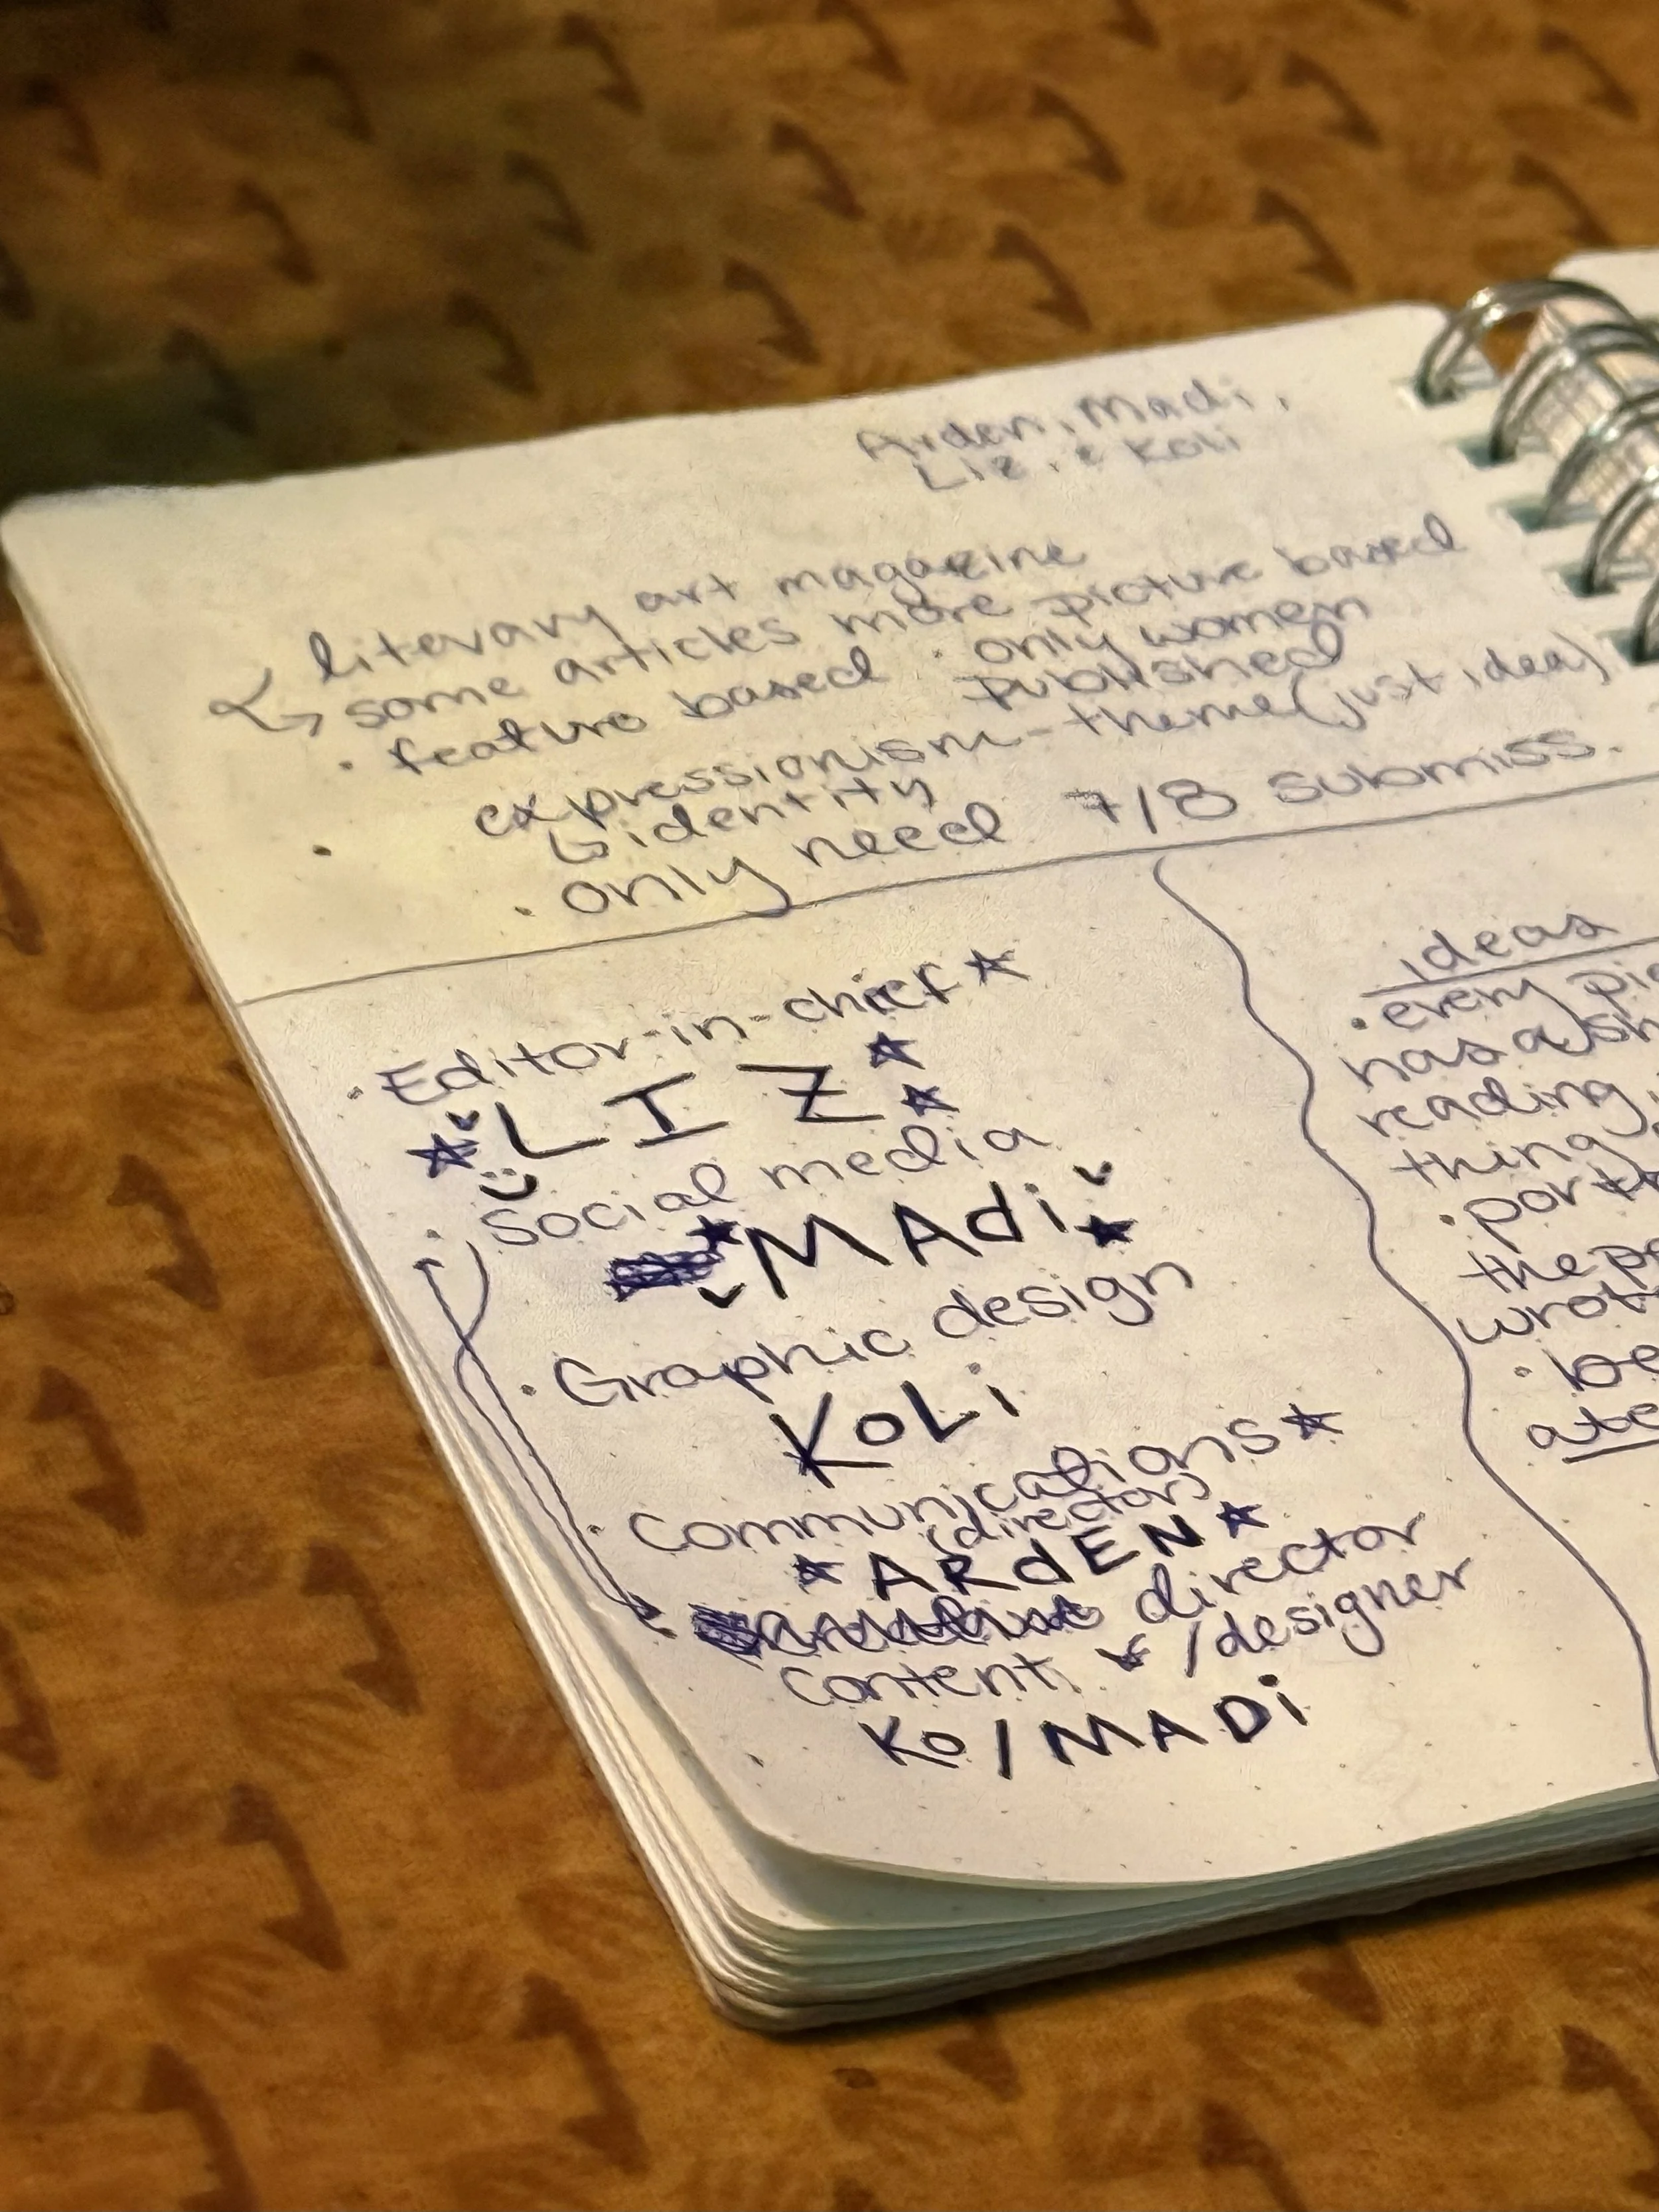 Arden, Madi,
Liz, & Koli
literary art magazine
some articles more picture based
· feature based · only women
published
expressionism - theme (just idea)
↳ identity
· only need 7/8 submiss.
· Editor-in-chief
LIZ
· Social media
MAdi
· Graphic design
KoLi
· Communications
(director)
ARdEN
director
Content /designer
Ko/MADi
ideas
· every
has a
reading
thing
the